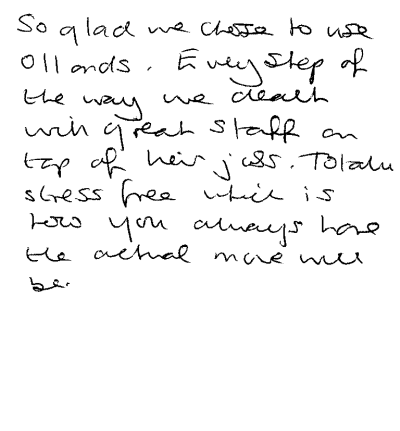 So glad we chose to use
Ollands. Every step of
the way we dealt
with great staff on
top of their jobs. Totally
stress free which is
how you always hope
the actual move will
be.